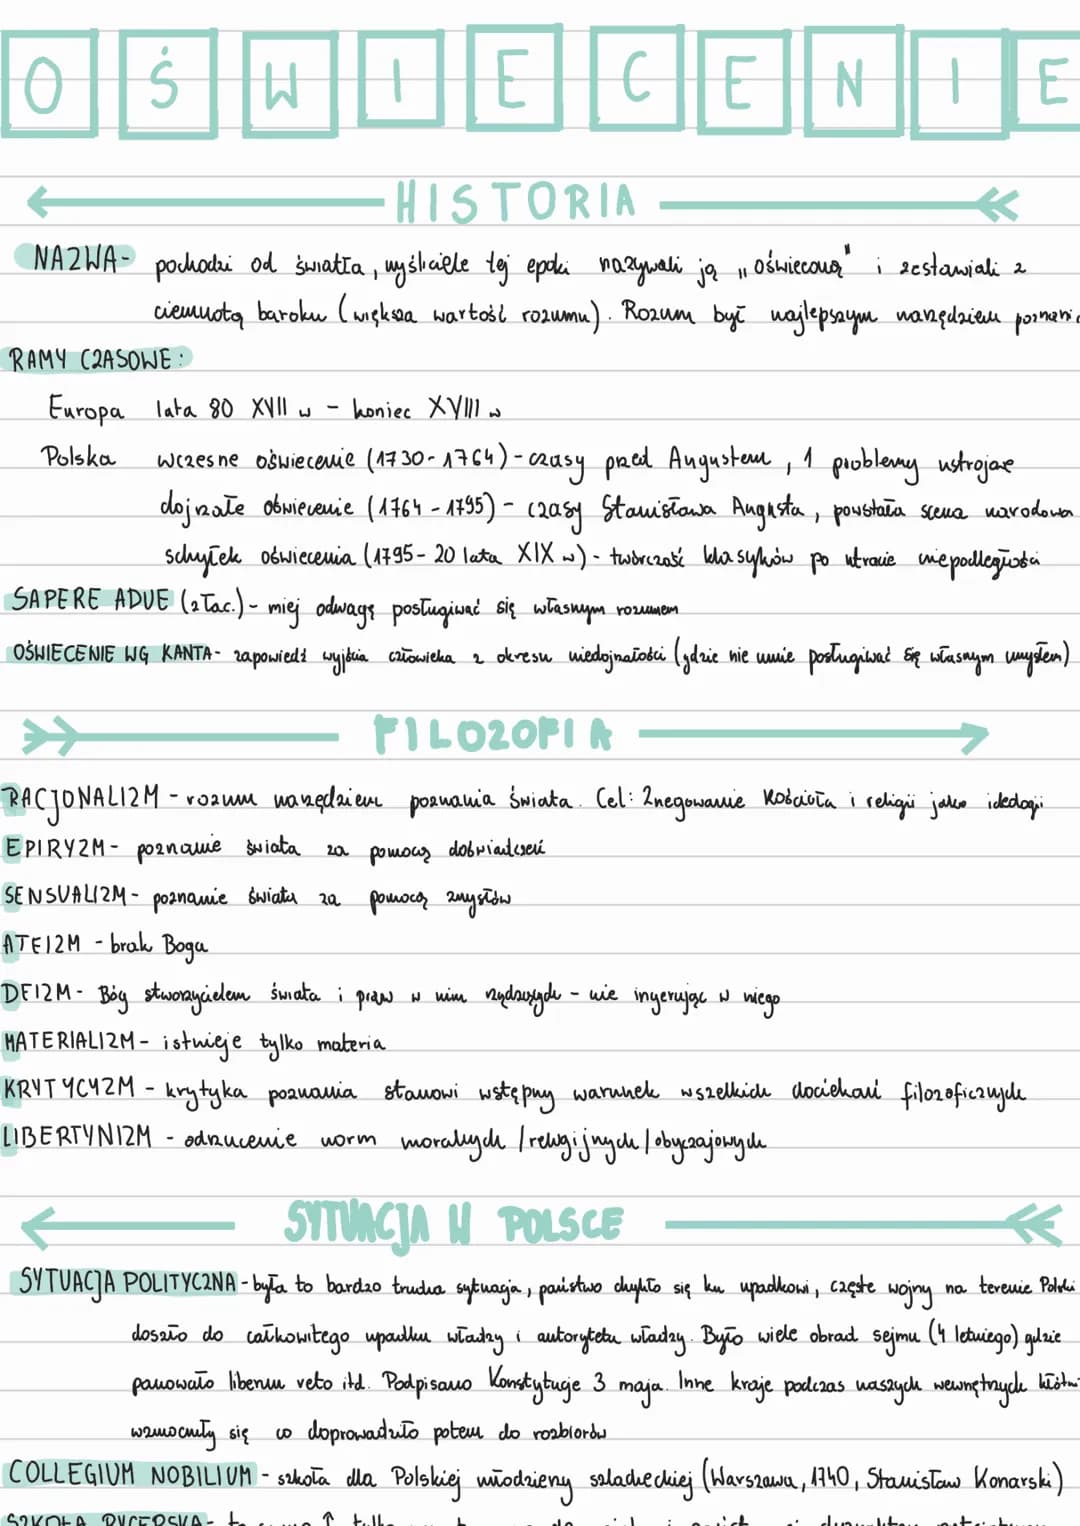 OŚWIECENIE
HISTORIA
NAZWA- pochodzi od światła, myśliciele tej epoki nazywali ją „oświeconą" i zestawiali z
ciemnotą baroku (większa wartość rozumu). Rozum być najlepszym narzędziem poznania
RAMY CZASOWE:
Europa lata 80 XVII w - koniec XVIII w
Polska wczesne oświecenie (1730-1764)-czasy przed Augustem, 1 problemy ustrojowe
dojrzałe oświecenie (1764-1795)- czasy Stanisława Augusta, powstała scena narodowa
schyłek oświecenia (1795-20 lata XIX w)- twórczość klasyków po utracie niepodległości
SAPERE ADUE (złac.)- miej odwagę posługiwać się własnym rozumem
OŚWIECENIE WG KANTA- zapowiedź wyjścia człowieka z okresu niedojrzałości (gdzie nie umie posługiwać się własnym umysłem)
FILOZOFIA
RACJONALIZM - rozum narzędziem poznania świata. Cel: Znegowanie Kościoła i religii jako ideologii
EPIRYZM- poznanie świata za pomocą doświadczeń
SENSUALIZM- poznanie świata za pomocą zmysłów
ATEIZM - brak Boga
DEIZM- Bóg stworzycielem świata i praw w nim rządzących - nie ingerując w niego
MATERIALIZM- istnieje tylko materia
KRYTYCYZM - krytyka poznania stanowi wstępny warunek wszelkich dociekań filozoficznych
LIBERTYNIZM - odrzucenie norm moralnych / religijnych / obyczajowych
SYTUACJA W POLSCE
SYTUACJA POLITYCZNA -była to bardzo trudna sytuacja, państwo chyliło się ku upadkowi, częste wojny na terenie Polski
doszło do całkowitego upadku władzy i autorytetu władzy. Było wiele obrad sejmu (4 letniego) gdzie
panowało liberum veto itd. Podpisano Konstytucje 3 maja. Inne kraje podczas naszych wewnętrznych
wzmocniły się co doprowadziło potem do rozbiorów
COLLEGIUM NOBILIUM - szkoła dla Polskiej młodzieny szlacheckiej (Warszawa, 1740, Stanisław Konarski)
SZKOŁA RYCERSKA-